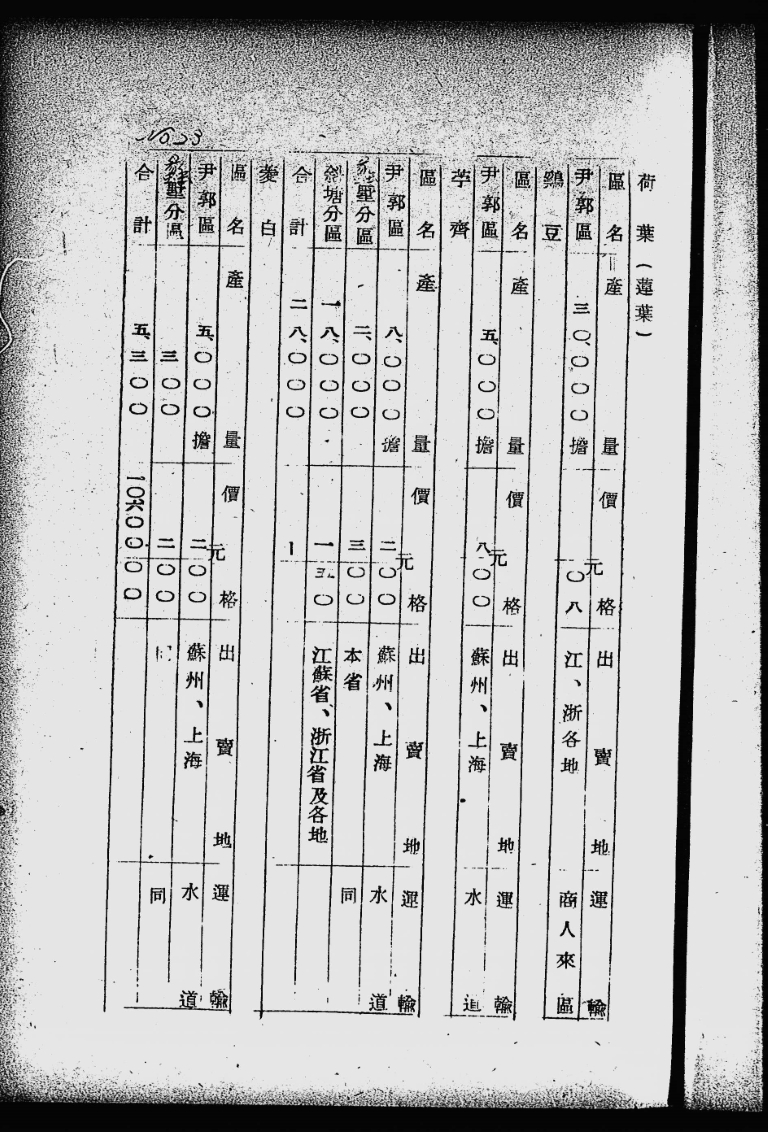 荷葉(蓮葉)
區名 產量 價格 出賣地 運輸
尹郭區 三〇、〇〇〇擔 元〇八 江、浙各地 商人來區
鷄豆
區名 產量 價格 出賣地 運輸
尹郭區 五、〇〇〇擔 八元〇〇 蘇州、上海 水道
荸薺
區名 產量 價格 出賣地 運輸
尹郭區 八、〇〇〇擔 二元〇〇 蘇州、上海 水道
墅分區 二、〇〇〇 三〇〇 本省 同
斜塘分區 一八、〇〇〇 一 〇 江蘇省、浙江省及各地
合計 二八、〇〇〇
茭白
區名 產量 價格 出賣地 運輸
尹郭區 五、〇〇〇擔 二元〇〇 蘇州、上海 水道
墅分區 三〇〇 二〇〇 同
合計 五、三〇〇
No 23